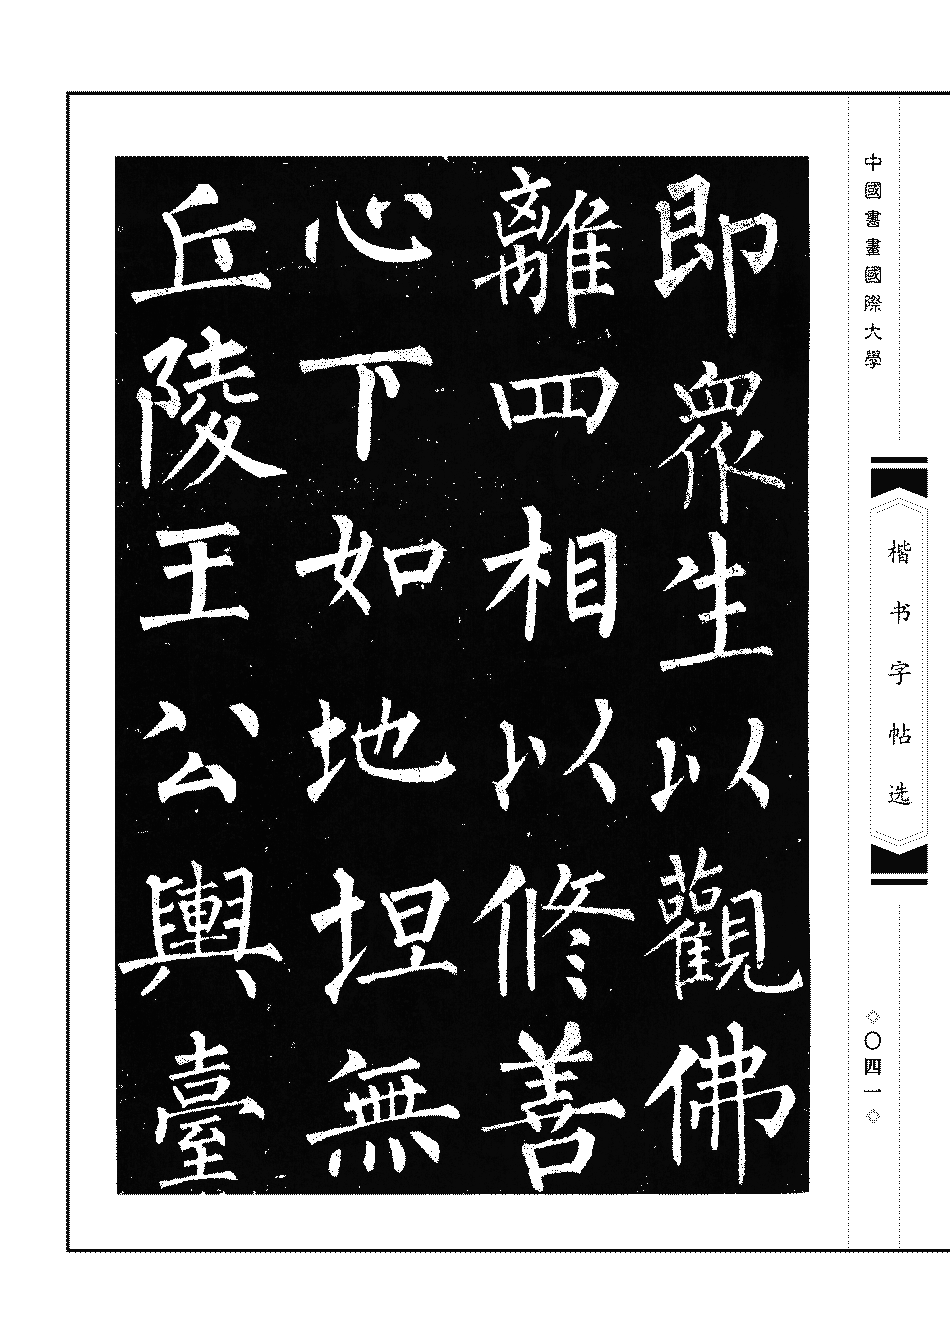 中國書畫國際大學
楷书字帖选
◇〇四一◇
即衆生以觀佛
離四相以修善
心下如地坦無
丘陵王公輿臺